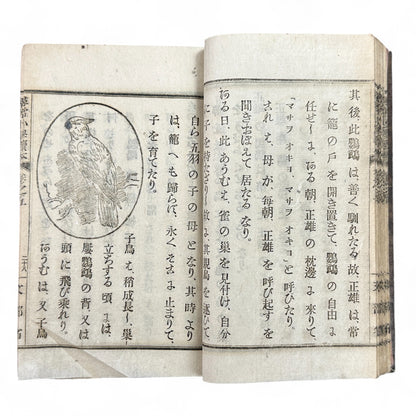 其後此鸚鵡は、善く馴れたる故、正雄は常
に籠の戸を開き置きて、鸚鵡の自由に
任せしに、ある朝、正雄の枕邊に來りて、
「マサヲオキヨ、マサヲオキヨ」と呼びたり。
これは、母が、毎朝、正雄を呼び起すを
聞きおぼえて居たるなり。
ある日、此あうむは、雀の巣を見付け、自分
自ら五羽の子の母となり、其時より
は、籠へも歸らず、永くそこに止まりて、
子を育てたり。
子鳥は、稍成長し、巣
立ちする頃には、
屢鸚鵡の背、又は
頭に飛び乘れり。
あうむは、又子鳥